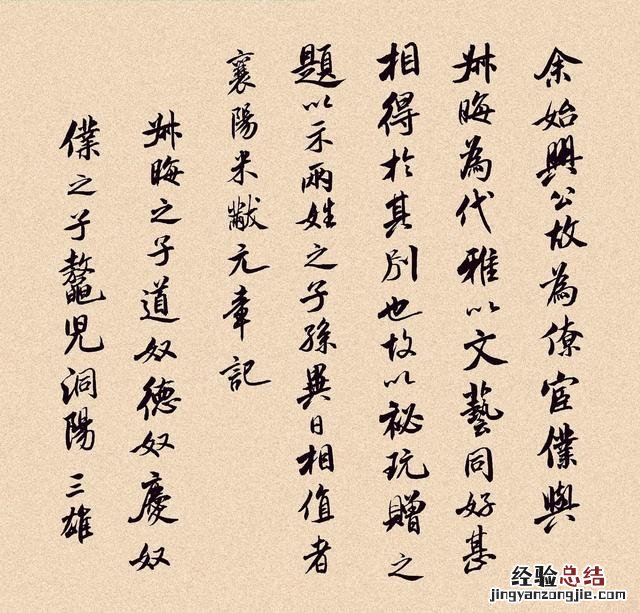 余始興公故為僚宦僕與
叔晦為代雅以文藝同好甚
相得於其別也故以祕玩贈之
題以示兩姓之子孫異日相值者
襄陽米黻元章記
叔晦之子道奴德奴慶奴
僕之子鼇兒洞陽三雄
经验总结
jingyanzongjie.com